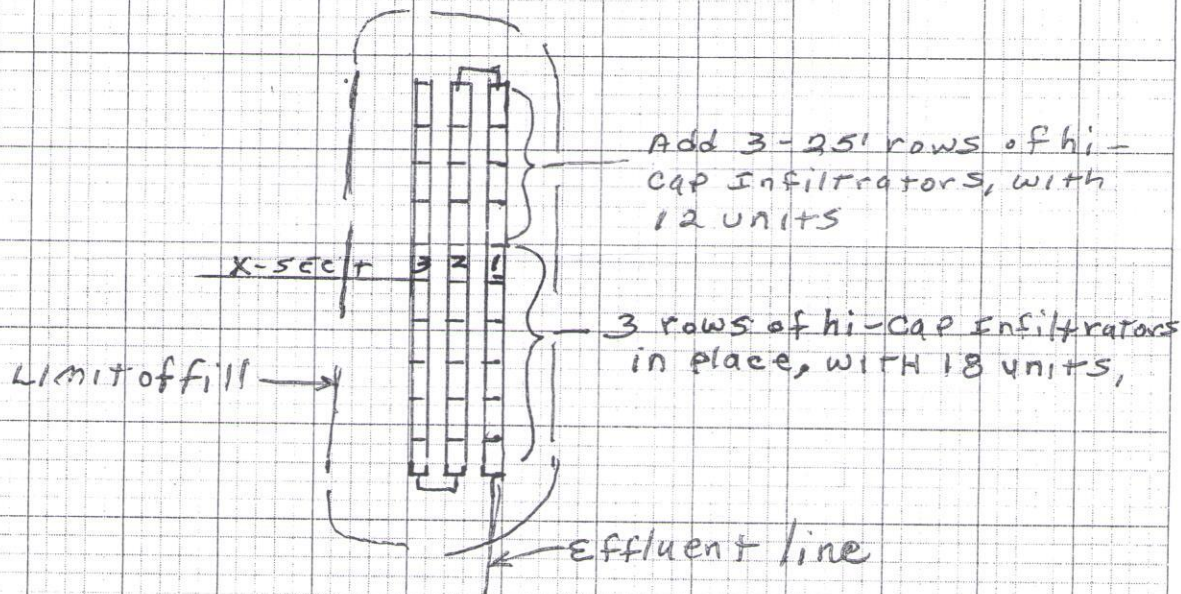 Add 3-25' rows of hi-
cap Infiltrators, with
12 units
X-SECT
3 2 1
3 rows of hi-cap Infiltrators
in place, with 18 units,
Limit of fill
Effluent line